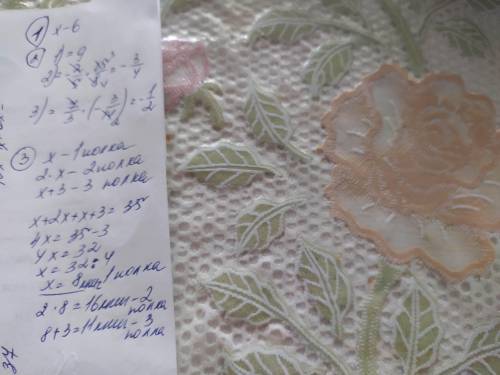 ① x-6
②
1) = 9
3) = · (- ) = - 1/2
③ x - 1 полка
2·x - 2 полка
x+3 - 3 полка
x+2x+x+3=35
4x=35-3
4x=32
x=32:4
x=8 1 полка
2·8=16книг-2
полка
8+3=11книг-3
полка
37